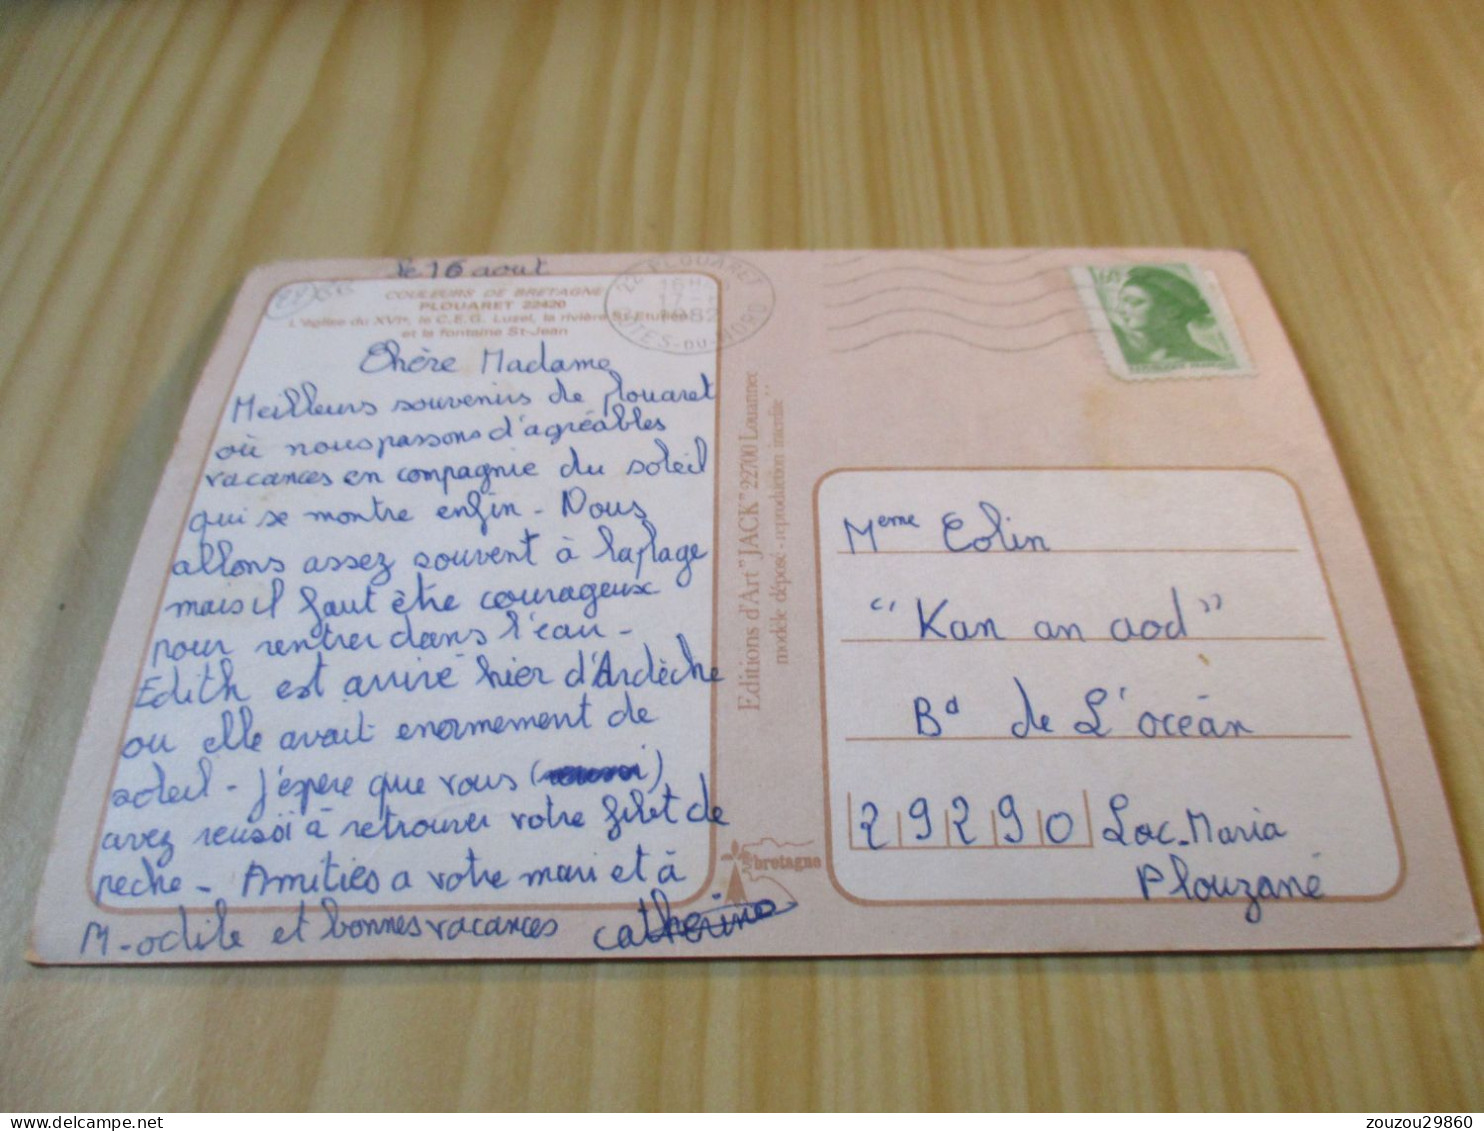 le 16 août
COULEURS DE BRETAGNE
PLOUARET 22420
L'église du XVIe, le C.E.G. Luzel, la rivière St-Ethurien
et la fontaine St-Jean
22 PLOUARET
16H
17-8
1982
COTES-DU-NORD
Chère Madame
Meilleurs souvenirs de Plouaret
où nous passons d'agréables
vacances en compagnie du soleil
qui se montre enfin - Nous
allons assez souvent à la plage
mais il faut être courageux
pour rentrer dans l'eau -
Edith est arrivé hier d'Ardèche
ou elle avait enormement de
soleil - J'espère que vous
avez reussï à retrouver votre filet de
peche - Amitiés a votre mari et à
M-odile et bonnes vacances Catherine
Editions d'Art "JACK" 22700 Louannec
modèle déposé - reproduction interdite
bretagne
REPUBLIQUE FRANÇAISE
Meme Colin
"Kan an aod"
Bd de L'océan
29290 Loc-Maria
Plouzané
zouzou29860